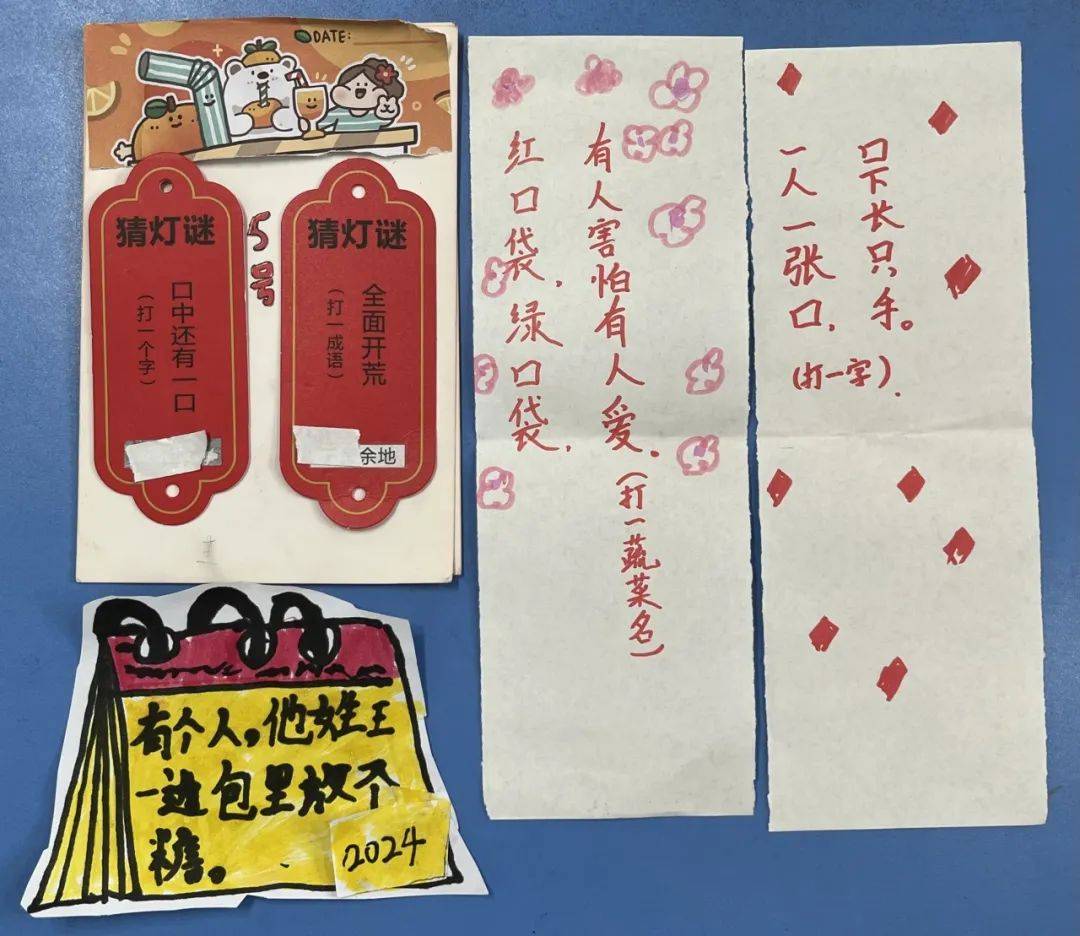 DATE:
猜灯谜
口中还有一口
（打一个字）
5号
猜灯谜
全面开荒
（打一成语）
余地
红口袋，绿口袋，
有人害怕有人爱。（打一蔬菜名）
一人一张口，
口下长只手。
（打一字）.
有个人，他姓王
一边包里放个
糖。
2024